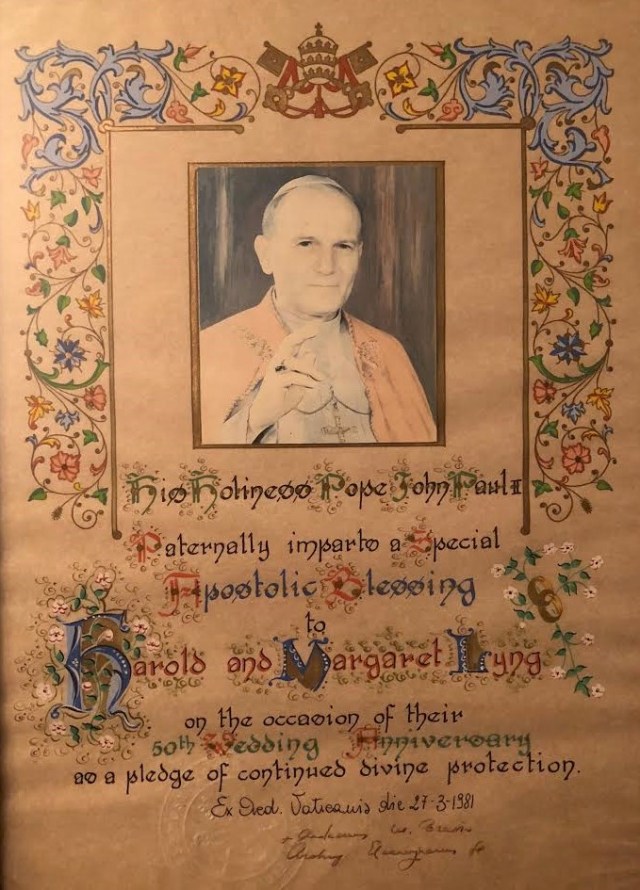 His Holiness Pope John Paul II
Paternally imparts a Special
Apostolic Blessing
to
Harold and Margaret Lyng
on the occasion of their
50th Wedding Anniversary
as a pledge of continued divine protection.
Ex Aed. Vaticanis die 27-3-1981